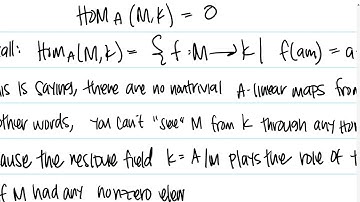 Hom_A(M,k) = 0
all: Hom_A(M,k) = { f: M → k | f(am) = a·
is is saying, there are no nontrivial A-linear maps from
other words, you can't "see" M from k through any Hom
ause the residue field k = A/m plays the role of
f M had any nonzero elem